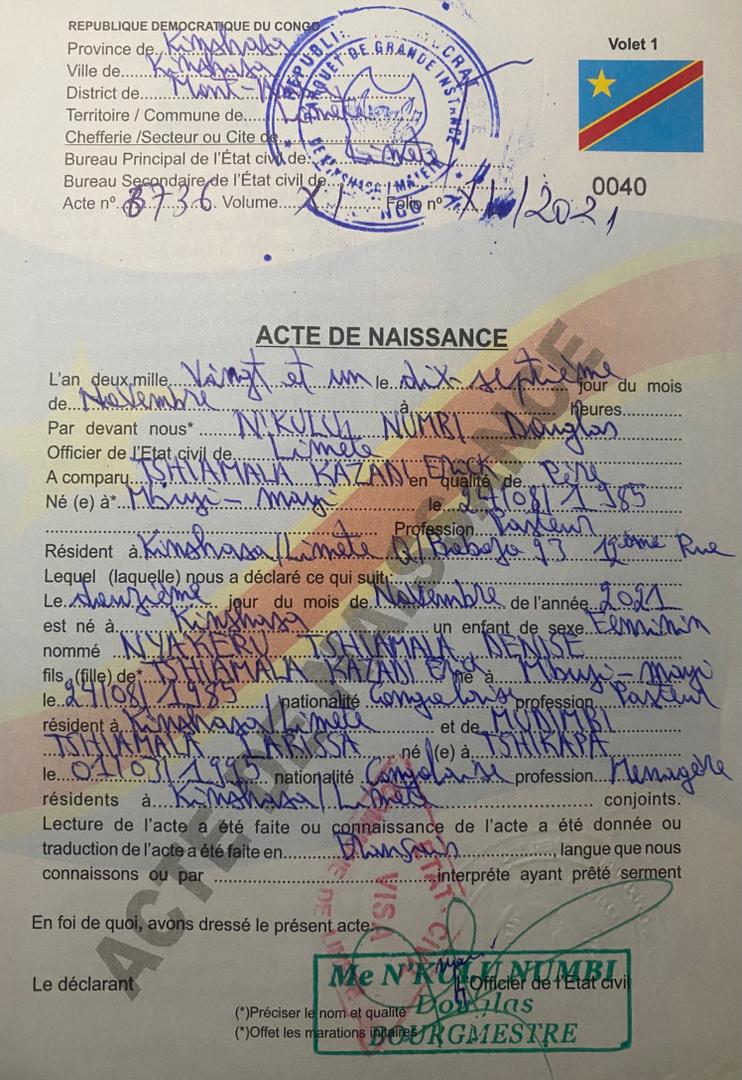 REPUBLIQUE DEMOCRATIQUE DU CONGO
Volet 1
Province de Kinshasa
Ville de Kinshasa
District de Mont-Amba
Territoire / Commune de Limete
Chefferie /Secteur ou Cite de
Bureau Principal de l'État civil de Limete
Bureau Secondaire de l'État civil de
0040
Acte n° 8736 Volume XI Folio n° XI/2021
PARQUET DE GRANDE INSTANCE DE KINSHASA / MATETE
ACTE DE NAISSANCE
L'an deux mille Vingt et un le dix-septième jour du mois
de Novembre à heures
Par devant nous* N'KULU NUMBI Douglas
Officier de l'Etat civil de Limete
A comparu TSHIAMALA KAZADI Erick en qualité de Père
Né (e) à* Mbuyi-mayi le 24/08/1985
Profession Pasteur
Résident à Kinshasa/Limete Q/ 93 Rue
Lequel (laquelle) nous a déclaré ce qui suit:
Le douzième jour du mois de Novembre de l'année 2021
est né à Kinshasa un enfant de sexe Féminin
nommé NYAKERU TSHIAMALA DENISE
fils (fille) de* TSHIAMALA KAZADI Erick né à Mbuyi-mayi
le 24/08/1985 nationalité Congolaise profession Pasteur
résident à Kinshasa/Limete et de MUDIMBI
TSHIAMALA LARISSA né (e) à TSHIKAPA
le 01/03/1995 nationalité Congolaise profession Menagère
résidents à Kinshasa/Limete conjoints.
Lecture de l'acte a été faite ou connaissance de l'acte a été donnée ou
traduction de l'acte a été faite en Français, langue que nous
connaissons ou par interprète ayant prêté serment
ETAT CIVIL
VISA
En foi de quoi, avons dressé le présent acte.
Le déclarant
L'Officier de l'Etat civil
Me N'KULU NUMBI
Douglas
BOURGMESTRE
(*)Préciser le nom et qualité
(*)Offet les marations initaires
ACTE DE NAISSANCE